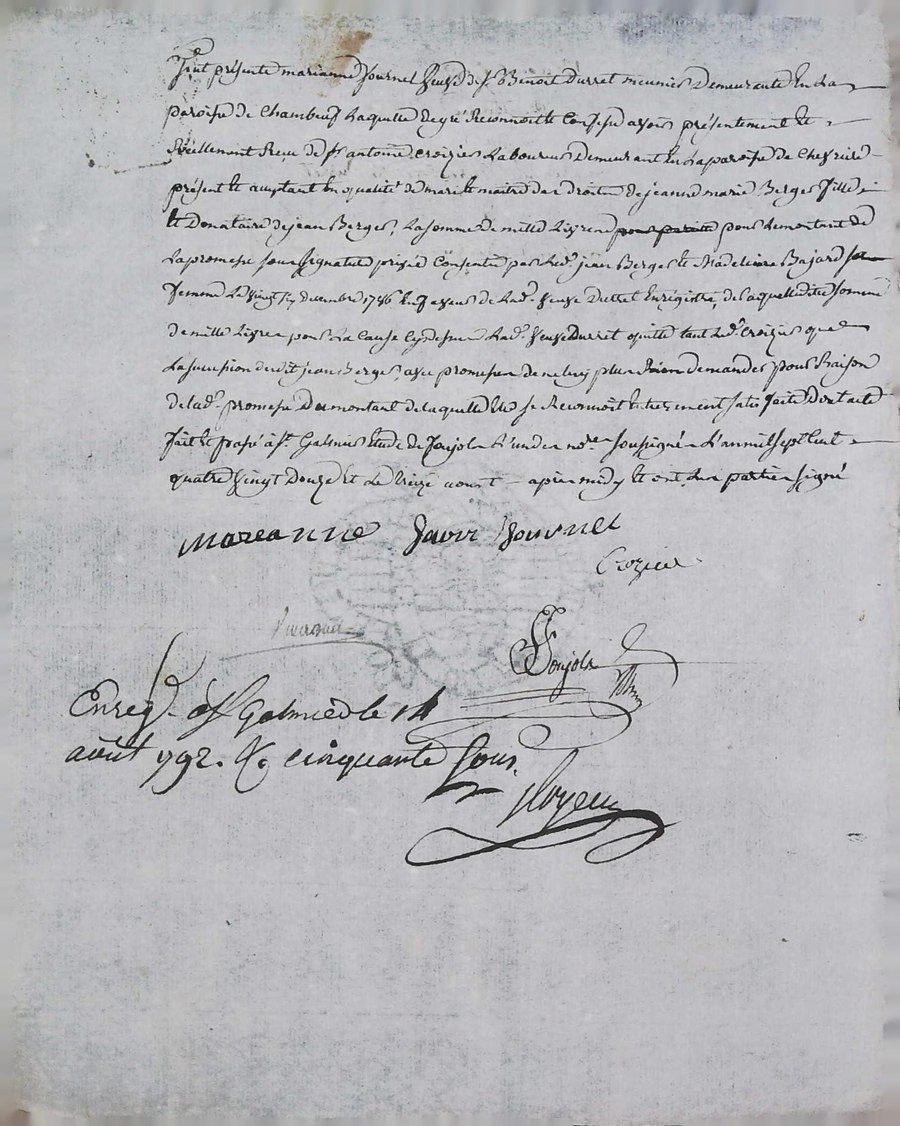 fut présente marianne Journel veuve de Sr Benoit Durret meunier Demeurante En La
paroisse de Chambeuf Laquelle de gré Reconnoit et Confesse avoir présentement et
Réellement Receu de Sr antoine croizier Laboureur Demeurant En La paroisse de Chevriere
présent et acceptant En qualité de mari et maitre des droits de jeanne marie Berger fille
et Donataire de jean Berger, La somme de mille Livres pour Le montant de
La promesse sous signature privée Consentie par Led. jean Berger et Madeleine Bajard sa
femme Le vingt sept decembre 1786 En faveur de Lad. veuve Durret Enregistré, de laquelle ditte somme
de mille Livres pour La Cause Cy dessus Lad. veuve Durret quitte tant Led. Croizier que
La succession dudit jean Berger, avec promesse de ne leur plus Rien demander pour Raison
de lad. promesse Du montant de laquelle Elle se Reconnoit Entierement satisfaite Dont acte
fait et passé à St Galmier Etude de Poujola L'un des nores soussignés L'an mil sept Cent
quatre vingt Douze et Le treize aoust apres midy et ont Les parties signé
mareanne Journel
Crozier
Enreg. à St Galmier le 14
août 1792. R. cinquante sous.